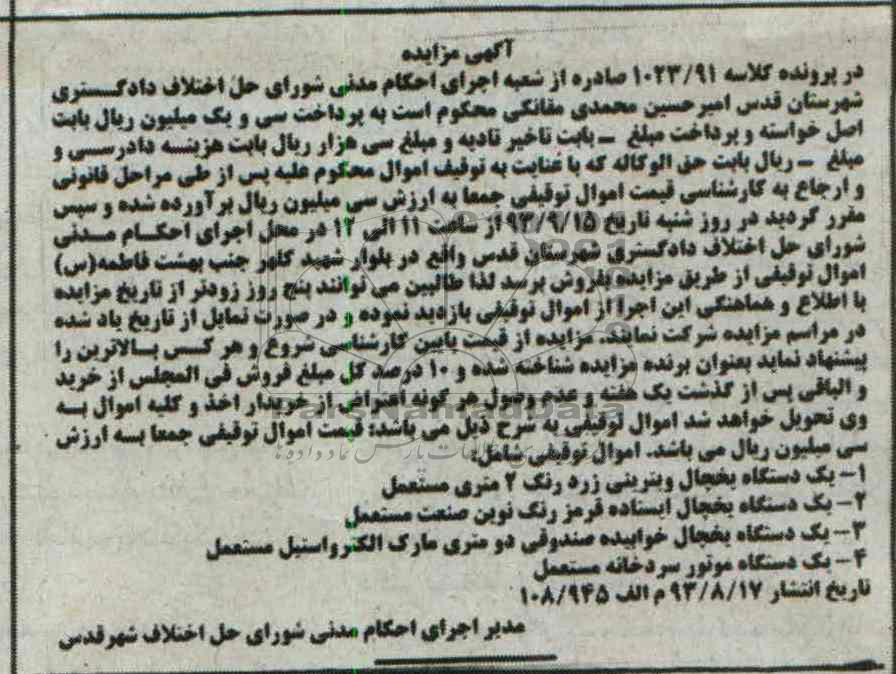 آگهی مزایده
در پرونده کلاسه ۱۰۲۳/۹۱ صادره از شعبه اجرای احکام مدنی شورای حل اختلاف دادگستری
شهرستان قدس امیرحسین محمدی مقانکی محکوم است به پرداخت سی و یک میلیون ریال بابت
اصل خواسته و پرداخت مبلغ ــ بابت تاخیر تادیه و مبلغ سی هزار ریال بابت هزینه دادرسی و
مبلغ ــ ریال بابت حق الوکاله که با عنایت به توقیف اموال محکوم علیه پس از طی مراحل قانونی
و ارجاع به کارشناسی قیمت اموال توقیفی جمعا به ارزش سی میلیون ریال برآورده شده و سپس
مقرر گردید در روز شنبه تاریخ ۹۳/۹/۱۵ از ساعت ۱۱ الی ۱۲ در محل اجرای احکام مدنی
شورای حل اختلاف دادگستری شهرستان قدس واقع در بلوار شهید کلهر جنب بهشت فاطمه(س)
اموال توقیفی از طریق مزایده بفروش برسد لذا طالبین می توانند پنج روز زودتر از تاریخ مزایده
با اطلاع و هماهنگی این اجرا از اموال توقیفی بازدید نموده و در صورت تمایل از تاریخ یاد شده
در مراسم مزایده شرکت نمایند. مزایده از قیمت پایین کارشناسی شروع و هر کس بالاترین را
پیشنهاد نماید بعنوان برنده مزایده شناخته شده و ۱۰ درصد کل مبلغ فروش فی المجلس از خرید
و الباقی پس از گذشت یک هفته و عدم وصول هر گونه اعتراض از خریدار اخذ و کلیه اموال به
وی تحویل خواهد شد اموال توقیفی به شرح ذیل می باشد: قیمت اموال توقیفی جمعا به ارزش
سی میلیون ریال می باشد. اموال توقیفی شامل:
۱- یک دستگاه یخچال ویترینی زرد رنگ ۲ متری مستعمل
۲- یک دستگاه یخچال ایستاده قرمز رنگ نوین صنعت مستعمل
۳- یک دستگاه یخچال خوابیده صندوقی دو متری مارک الکترواستیل مستعمل
۴- یک دستگاه موتور سردخانه مستعمل
تاریخ انتشار ۹۳/۸/۱۷ م الف ۱۰۸/۹۴۵
مدیر اجرای احکام مدنی شورای حل اختلاف شهرقدس
ParsNamadData